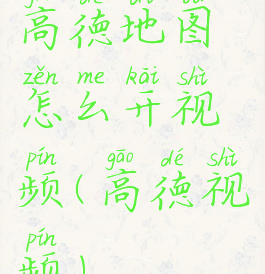 高德地图
zěn me kāi shì
怎么开视
pín gāo dé shì
频(高德视
pín
频)